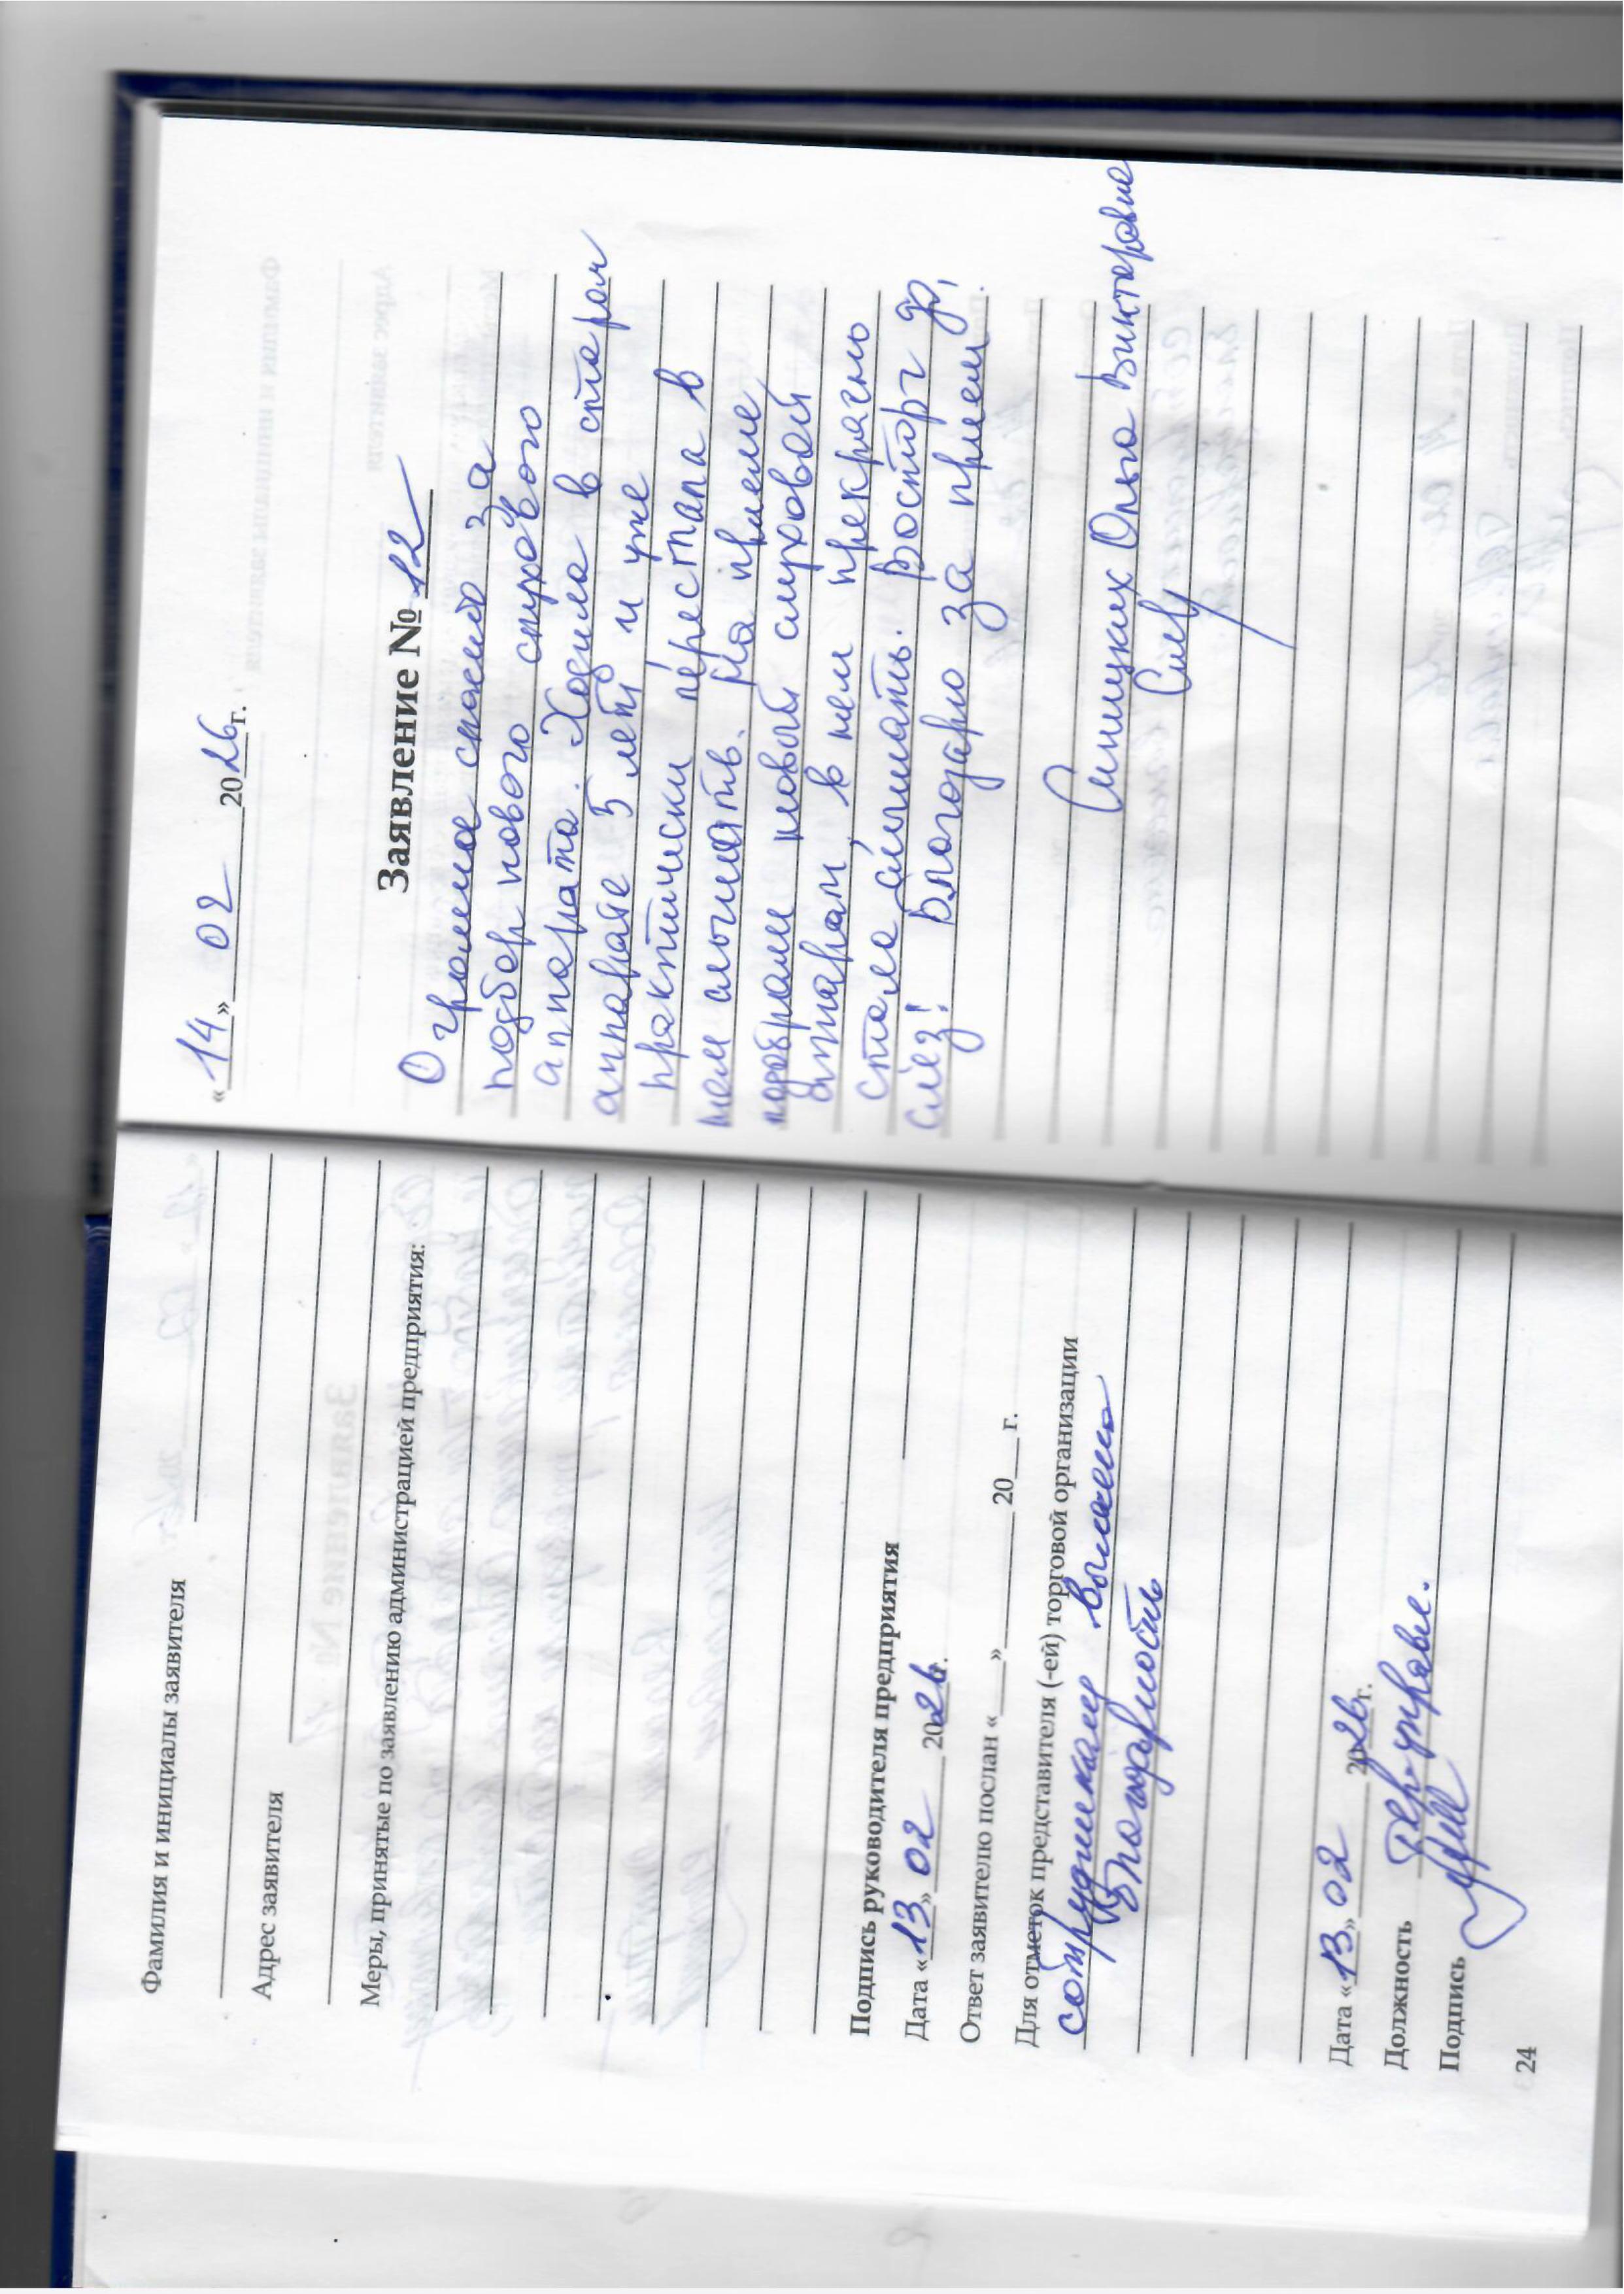 Фамилия и инициалы заявителя
Адрес заявителя
Меры, принятые по заявлению администрацией предприятия:
Подпись руководителя предприятия
Дата «13» 02 2026г.
Ответ заявителю послан «___»________20___г.
Для отметок представителя (-ей) торговой организации
сотрудникам вынесена
благодарность
Дата «13» 02 2026г.
Должность Тер. управл.
Подпись
24
«14» 02 2026г.
Заявление № 12
Огромное спасибо за
подбор нового слухового
аппарата. Ходила в старом
аппарате 5 лет и уже
практически перестала в
нем слышать. На приеме
подобрали новый слуховой
аппарат, в нем прекрасно
стала слышать. Восторг до
слез! Благодарю за прием.
Синицких Ольга Викторовна